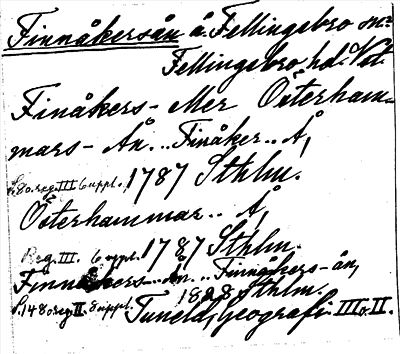 Finnåkersån å. Fellingsbro sn:
Fellingsbro hd. Vst.
Finåkers- Mer Österham-
mars- Ån.. Finåker.. Å,
s. 80. reg. III. 6 uppl. 1787 Sthlm.
Österhammar.. Å,
Reg. III. 6 uppl. 1787 Sthlm.
Finnåkers-. Ån.. Finnåkers-ån,
1828 Sthlm.
s. 148 o reg. II. 8 uppl. Tuneld, Geografi. III o. II.